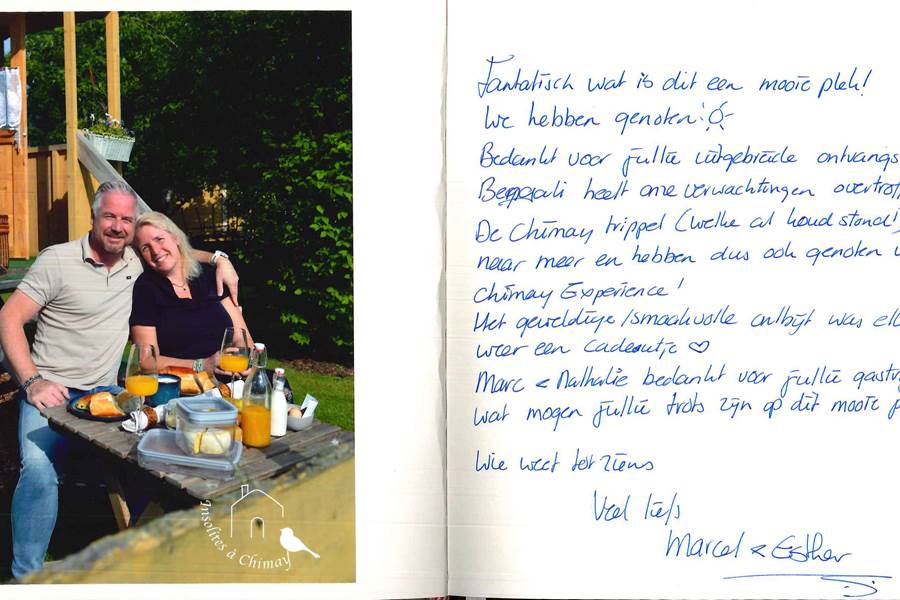 Insolites à Chimay
Fantatisch wat is dit een mooie plek!
We hebben genoten!
Bedankt voor jullie uitgebreide ontvangs
heeft onze verwachtingen overtrof
De Chimay trippel (welke al koud stond!)
naar meer en hebben dus ook genoten v
Chimay Experience!
Het geweldige/smaakvolle ontbijt was elk
weer een cadeautje ♡
Marc & Nathalie bedankt voor jullie gastv
wat mogen jullie trots zijn op dit mooie p
Wie weet tot ziens
Veel liefs
Marcel & Esther